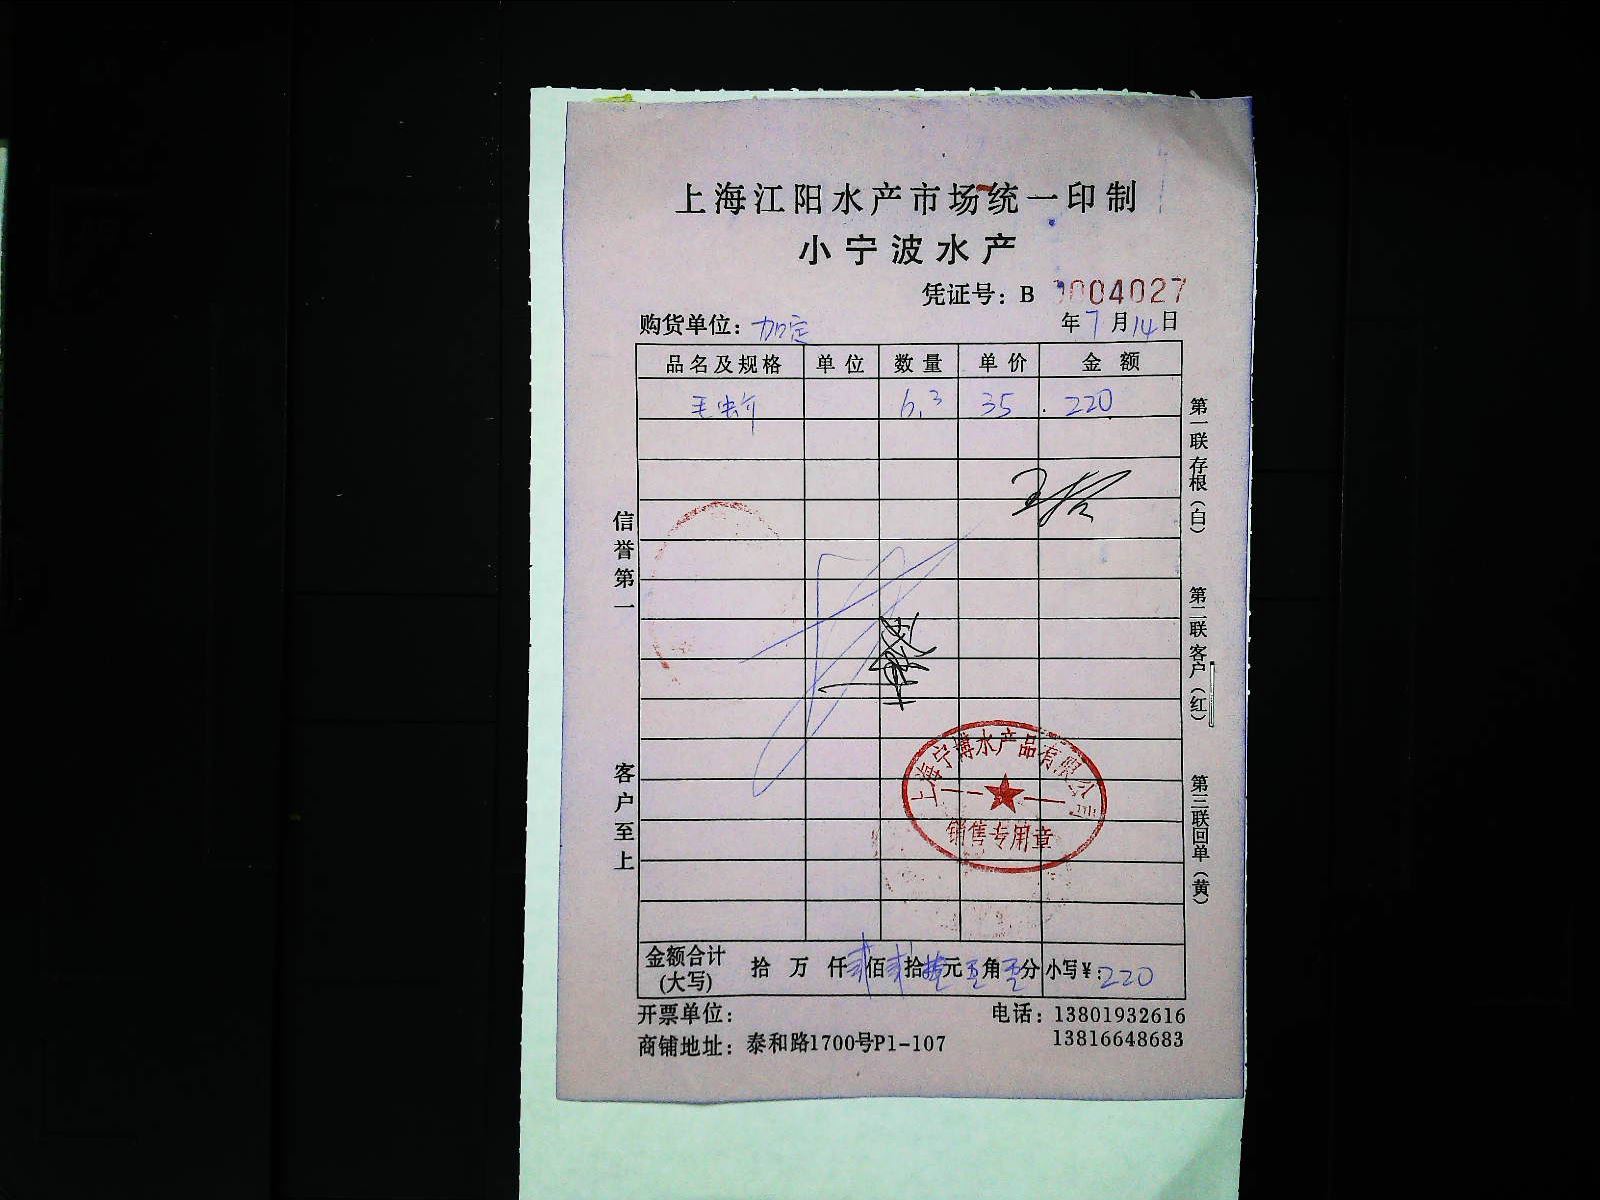 上海江阳水产市场统一印制
小宁波水产
凭证号：B 0004027
购货单位：加定 年7月14日
品名及规格 单位 数量 单价 金额
毛蚧 6.3 35 220
信誉第一
客户至上
第一联存根（白）
第二联客户（红）
第三联回单（黄）
上海宁博水产品有限公司
销售专用章
金额合计(大写) 拾 万 仟 贰佰 贰拾 元 角 分 小写¥：220
开票单位： 电话：13801932616
商铺地址：泰和路1700号P1-107 13816648683